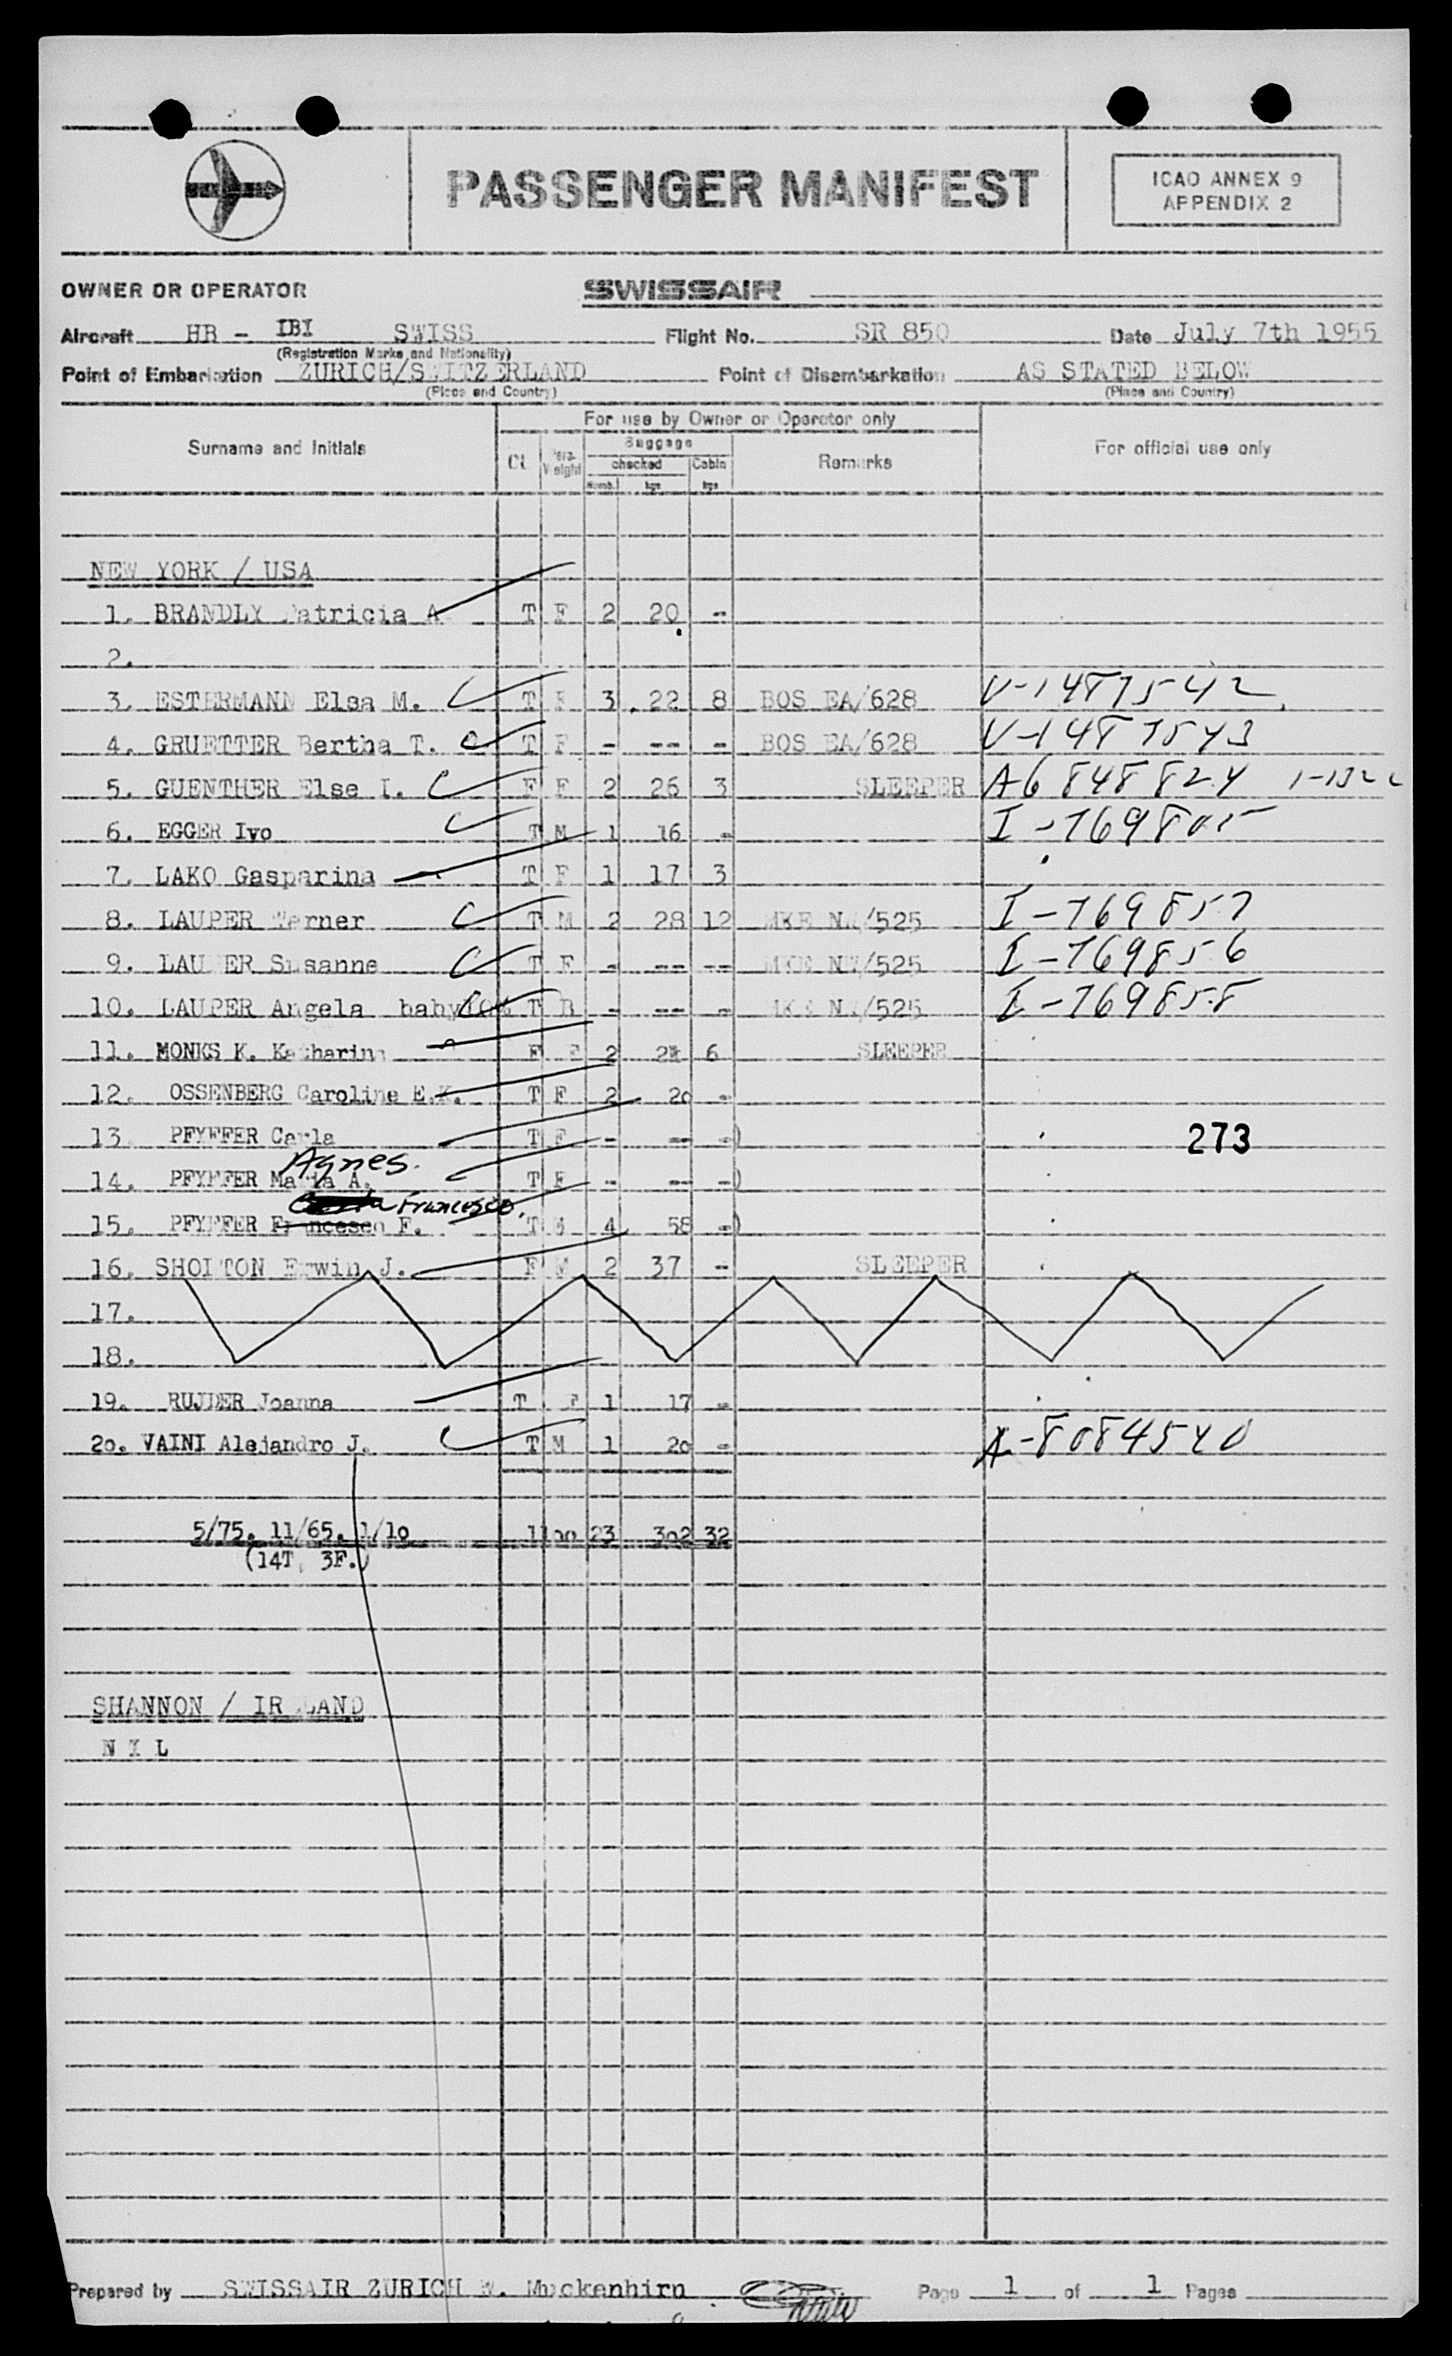 PASSENGER MANIFEST
ICAO ANNEX 9
APPENDIX 2
OWNER OR OPERATOR SWISSAIR
Aircraft HB - IBI SWISS Flight No. SR 850 Date July 7th 1955
(Registration Marks and Nationality)
Point of Embarkation ZURICH/SWITZERLAND Point of Disembarkation AS STATED BELOW
(Place and Country) (Place and Country)
For use by Owner or Operator only
Surname and Initials Cl. Weight Baggage Remarks For official use only
checked Cabin
Numb. kgs kgs
NEW YORK / USA
1. BRANDLY Patricia A T F 2 20 -
2.
3. ESTERMANN Elsa M. T F 3 22 8 BOS EA/628 V-1487542
4. GRUETTER Bertha T. T F - -- - BOS EA/628 V-1487543
5. GUENTHER Else I. F F 2 26 3 SLEEPER A6 848 824
6. EGGER Ivo T M 1 16 -
7. LAKO Gasparina T F 1 17 3
8. LAUPER Werner T M 2 28 12 MKE NW/525 I-769857
9. LAUPER Susanne T F - -- -- MKE NW/525 I-769856
10. LAUPER Angela baby T B - -- - MKE NW/525 I-769858
11. MONKS K. Katharina F F 2 6 SLEEPER
12. OSSENBERG Caroline E.K. T F 2 20 -
13. PFYFFER Carla T F - -- -)
Agnes.
14. PFYFFER Maria A. T F - -- -)
Francesco.
15. PFYFFER Francesco F. T 4 58 -)
16. SHOLTON Erwin J. F M 2 37 - SLEEPER
17.
18.
19. Joanna T F 1 17 -
20. VAINI Alejandro J. T M 1 20 - A-8084540
273
5/75. 11/65. 1/10 1100 23 302 32
(14T, 3F.)
SHANNON / IRELAND
N I L
Prepared by SWISSAIR ZURICH W. Muckenhirn Page 1 of 1 Pages